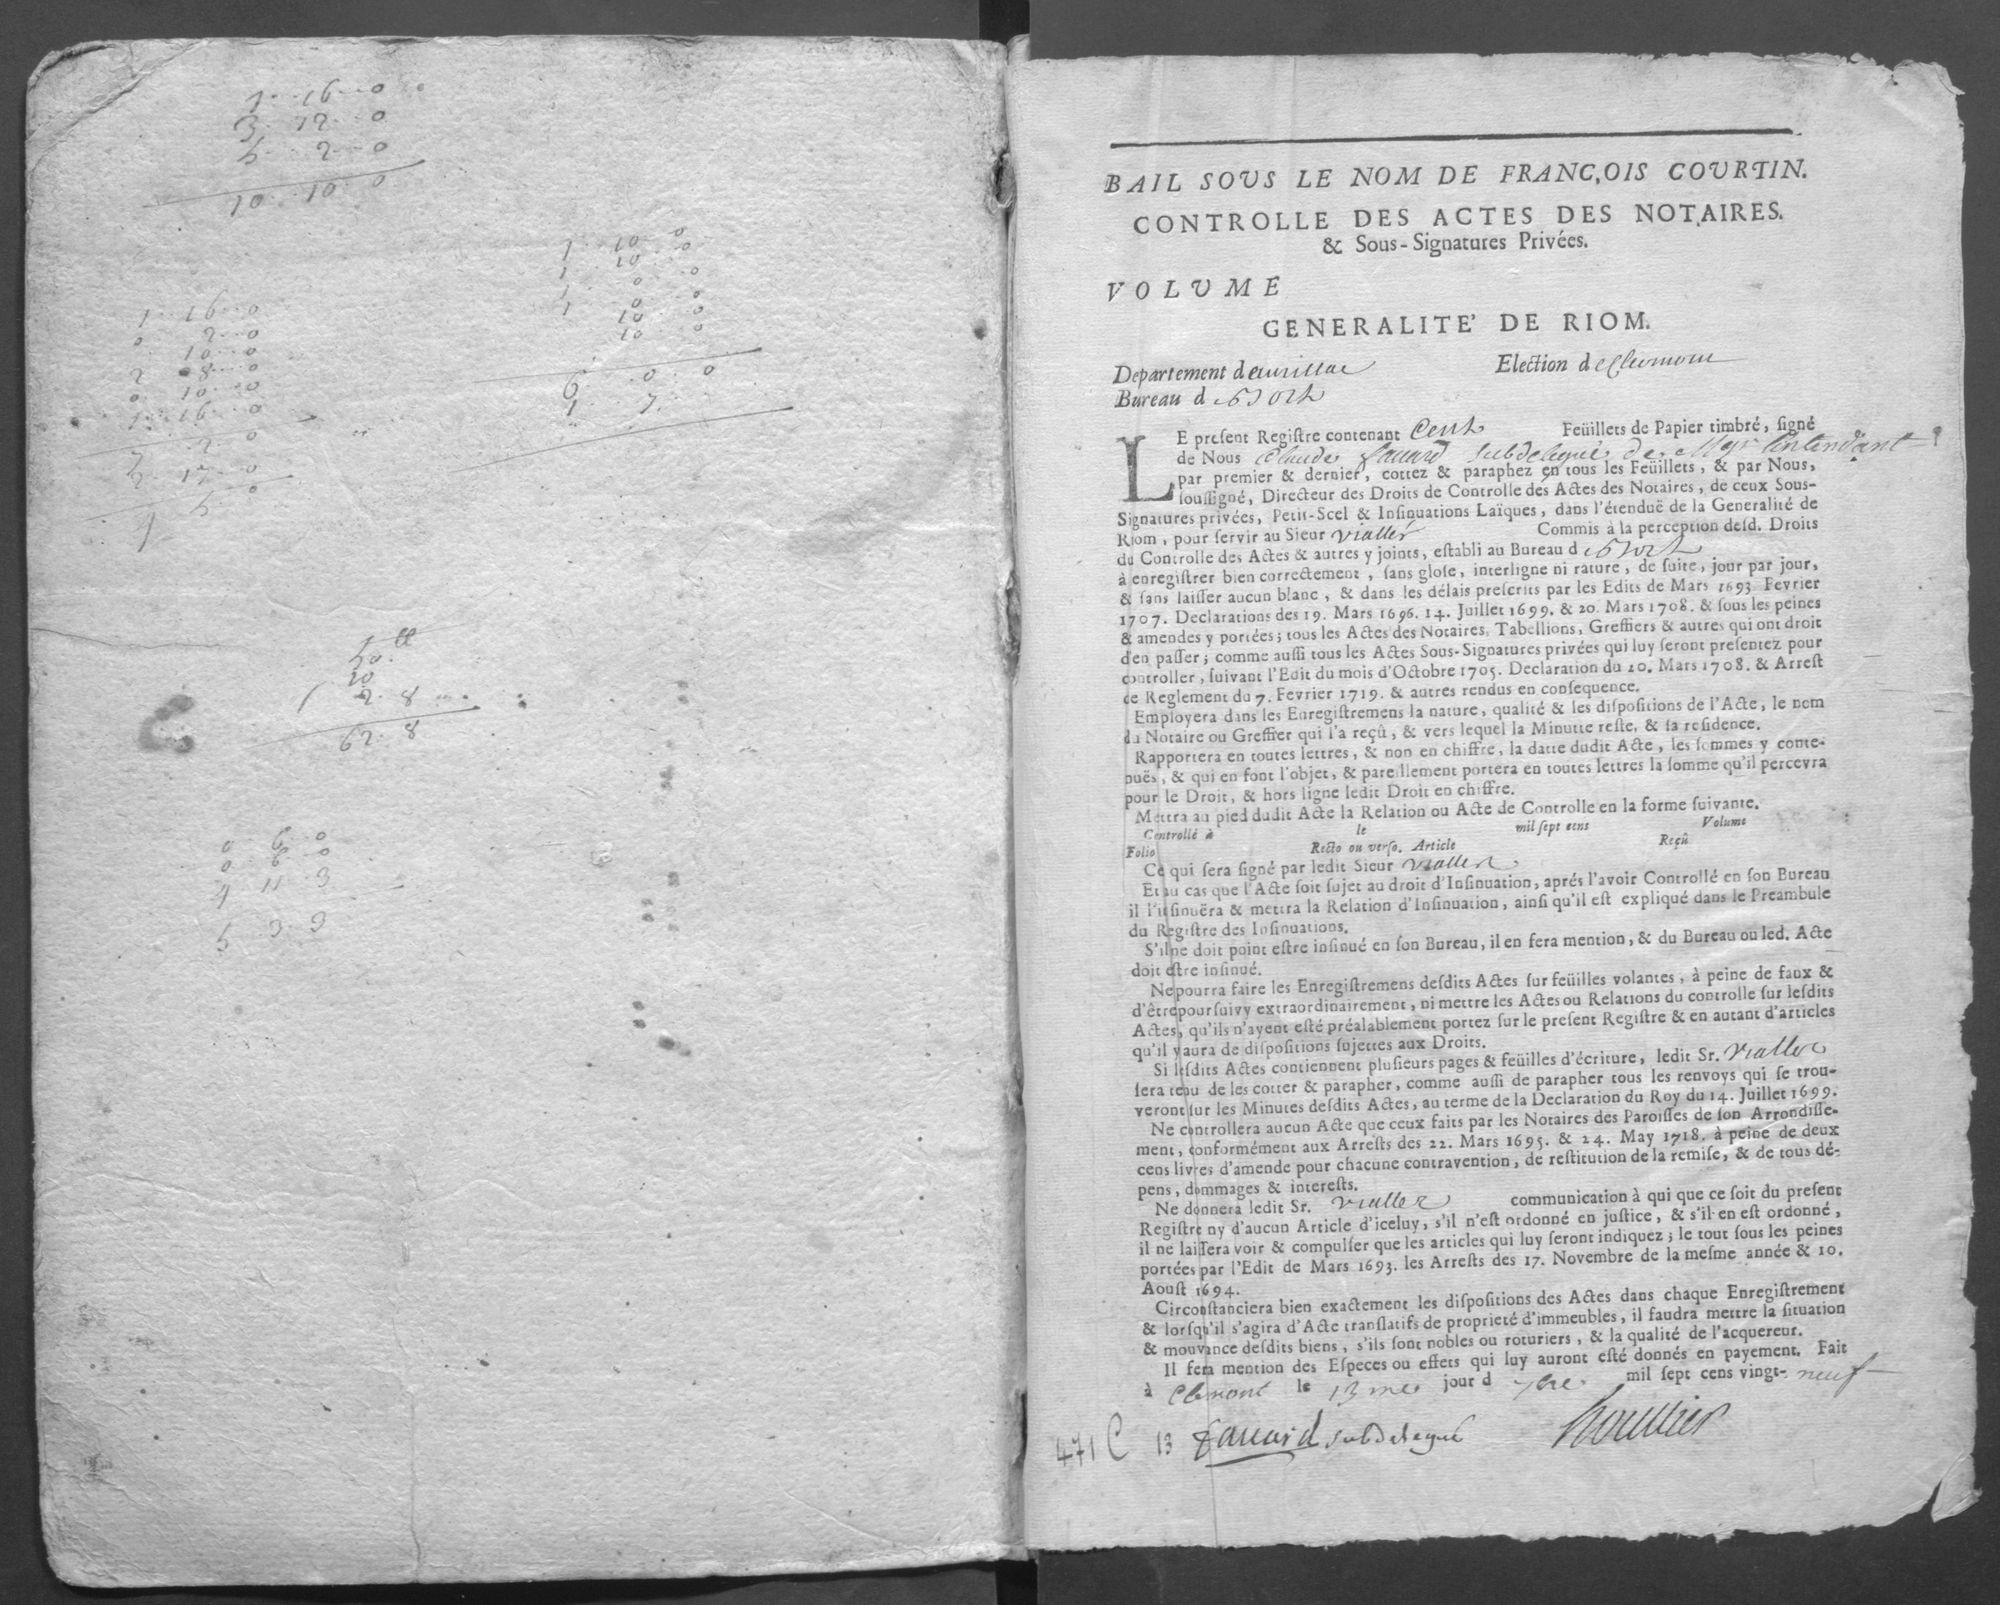 1 .. 16 .. 0
3 . 12 .. 0
5 .. 2 .. 0
10 .. 10 . 0
1 .. 10 . 0
1 .. 10 .. 0
1 .. 0 .. 0
1 .. 0 .. 0
10 .. 0
10 .. 0
6 .. 0 .. 0
1 .. 7
1 .. 16 .. 0
0 .. 2 .. 0
10 .. 0
2 .. 8 .. 0
0 .. 10 .. 0
1 .. 16 .. 0
7 .. 2 .. 0
10
2 . 8
62 . 8
4 .. 11 . 3
5 .. 3 . 3
BAIL SOVS LE NOM DE FRANC,OIS COVRTIN.
CONTROLLE DES ACTES DES NOTAIRES.
& Sous-Signatures Privées.
VOLVME
GENERALITE' DE RIOM.
Departement d'aurillac Election de Clermont
Bureau d Bort
LE present Registre contenant Cent Feüillets de Papier timbré, signé
de Nous Claude Favard subdelegué de Mgr Lintendant
par premier & dernier, cottez & paraphez en tous les Feüillets, & par Nous,
soussigné, Directeur des Droits de Controlle des Actes des Notaires, de ceux Sous-
Signatures privées, Petit-Scel & Insinuations Laïques, dans l'étenduë de la Generalité de
Riom, pour servir au Sieur Vialler Commis à la perception desd. Droits
du Controlle des Actes & autres y joints, establi au Bureau d Bort
à enregistrer bien correctement, sans glose, interligne ni rature, de suite, jour par jour,
& sans laisser aucun blanc, & dans les délais prescrits par les Edits de Mars 1693 Fevrier
1707. Declarations des 19. Mars 1696. 14. Juillet 1699. & 20. Mars 1708. & sous les peines
& amendes y portées; tous les Actes des Notaires, Tabellions, Greffiers & autres qui ont droit
d'en passer; comme aussi tous les Actes Sous-Signatures privées qui luy seront presentez pour
controller, suivant l'Edit du mois d'Octobre 1705. Declaration du 20. Mars 1708. & Arrest
de Reglement du 7. Fevrier 1719. & autres rendus en consequence.
Employera dans les Enregistremens la nature, qualité & les dispositions de l'Acte, le nom
du Notaire ou Greffier qui l'a reçû, & vers lequel la Minutte reste, & sa residence.
Rapportera en toutes lettres, & non en chiffre, la datte dudit Acte, les sommes y conte-
nuës, & qui en font l'objet, & pareillement portera en toutes lettres la somme qu'il percevra
pour le Droit, & hors ligne ledit Droit en chiffre.
Mettra au pied dudit Acte la Relation ou Acte de Controlle en la forme suivante.
Controllé à le mil sept cens Volume
Folio Recto ou verso. Article Reçû
Ce qui sera signé par ledit Sieur Vialler
Et au cas que l'Acte soit sujet au droit d'Insinuation, aprés l'avoir Controllé en son Bureau
il l'insinuëra & mettra la Relation d'Insinuation, ainsi qu'il est expliqué dans le Preambule
du Registre des Insinuations.
S'il ne doit point estre insinué en son Bureau, il en fera mention, & du Bureau ou led. Acte
doit estre insinué.
Ne pourra faire les Enregistremens desdits Actes sur feüilles volantes, à peine de faux &
d'être poursuivy extraordinairement, ni mettre les Actes ou Relations du controlle sur lesdits
Actes, qu'ils n'ayent esté préalablement portez sur le present Registre & en autant d'articles
qu'il y aura de dispositions sujettes aux Droits.
Si lesdits Actes contiennent plusieurs pages & feüilles d'écriture, ledit Sr. Vialler
sera tenu de les cotter & parapher, comme aussi de parapher tous les renvoys qui se trou-
veront sur les Minutes desdits Actes, au terme de la Declaration du Roy du 14. Juillet 1699.
Ne controllera aucun Acte que ceux faits par les Notaires des Paroisses de son Arrondisse-
ment, conformément aux Arrests des 22. Mars 1695. & 24. May 1718. à peine de deux
cens livres d'amende pour chacune contravention, de restitution de la remise, & de tous dé-
pens, dommages & interests.
Ne donnera ledit Sr. Vialler communication à qui que ce soit du present
Registre ny d'aucun Article d'iceluy, s'il n'est ordonné en justice, & s'il en est ordonné,
il ne laissera voir & compulser que les articles qui luy seront indiquez; le tout sous les peines
portées par l'Edit de Mars 1693. les Arrests des 17. Novembre de la mesme année & 10.
Aoust 1694.
Circonstanciera bien exactement les dispositions des Actes dans chaque Enregistrement
& lorsqu'il s'agira d'Acte translatifs de proprieté d'immeubles, il faudra mettre la situation
& mouvance desdits biens, s'ils sont nobles ou roturiers, & la qualité de l'acquereur.
Il fera mention des Especes ou effets qui luy auront esté donnés en payement. Fait
à Clermont le 13 me jour d 7bre mil sept cens vingt-neuf
471 C 13 Favard subdelegué